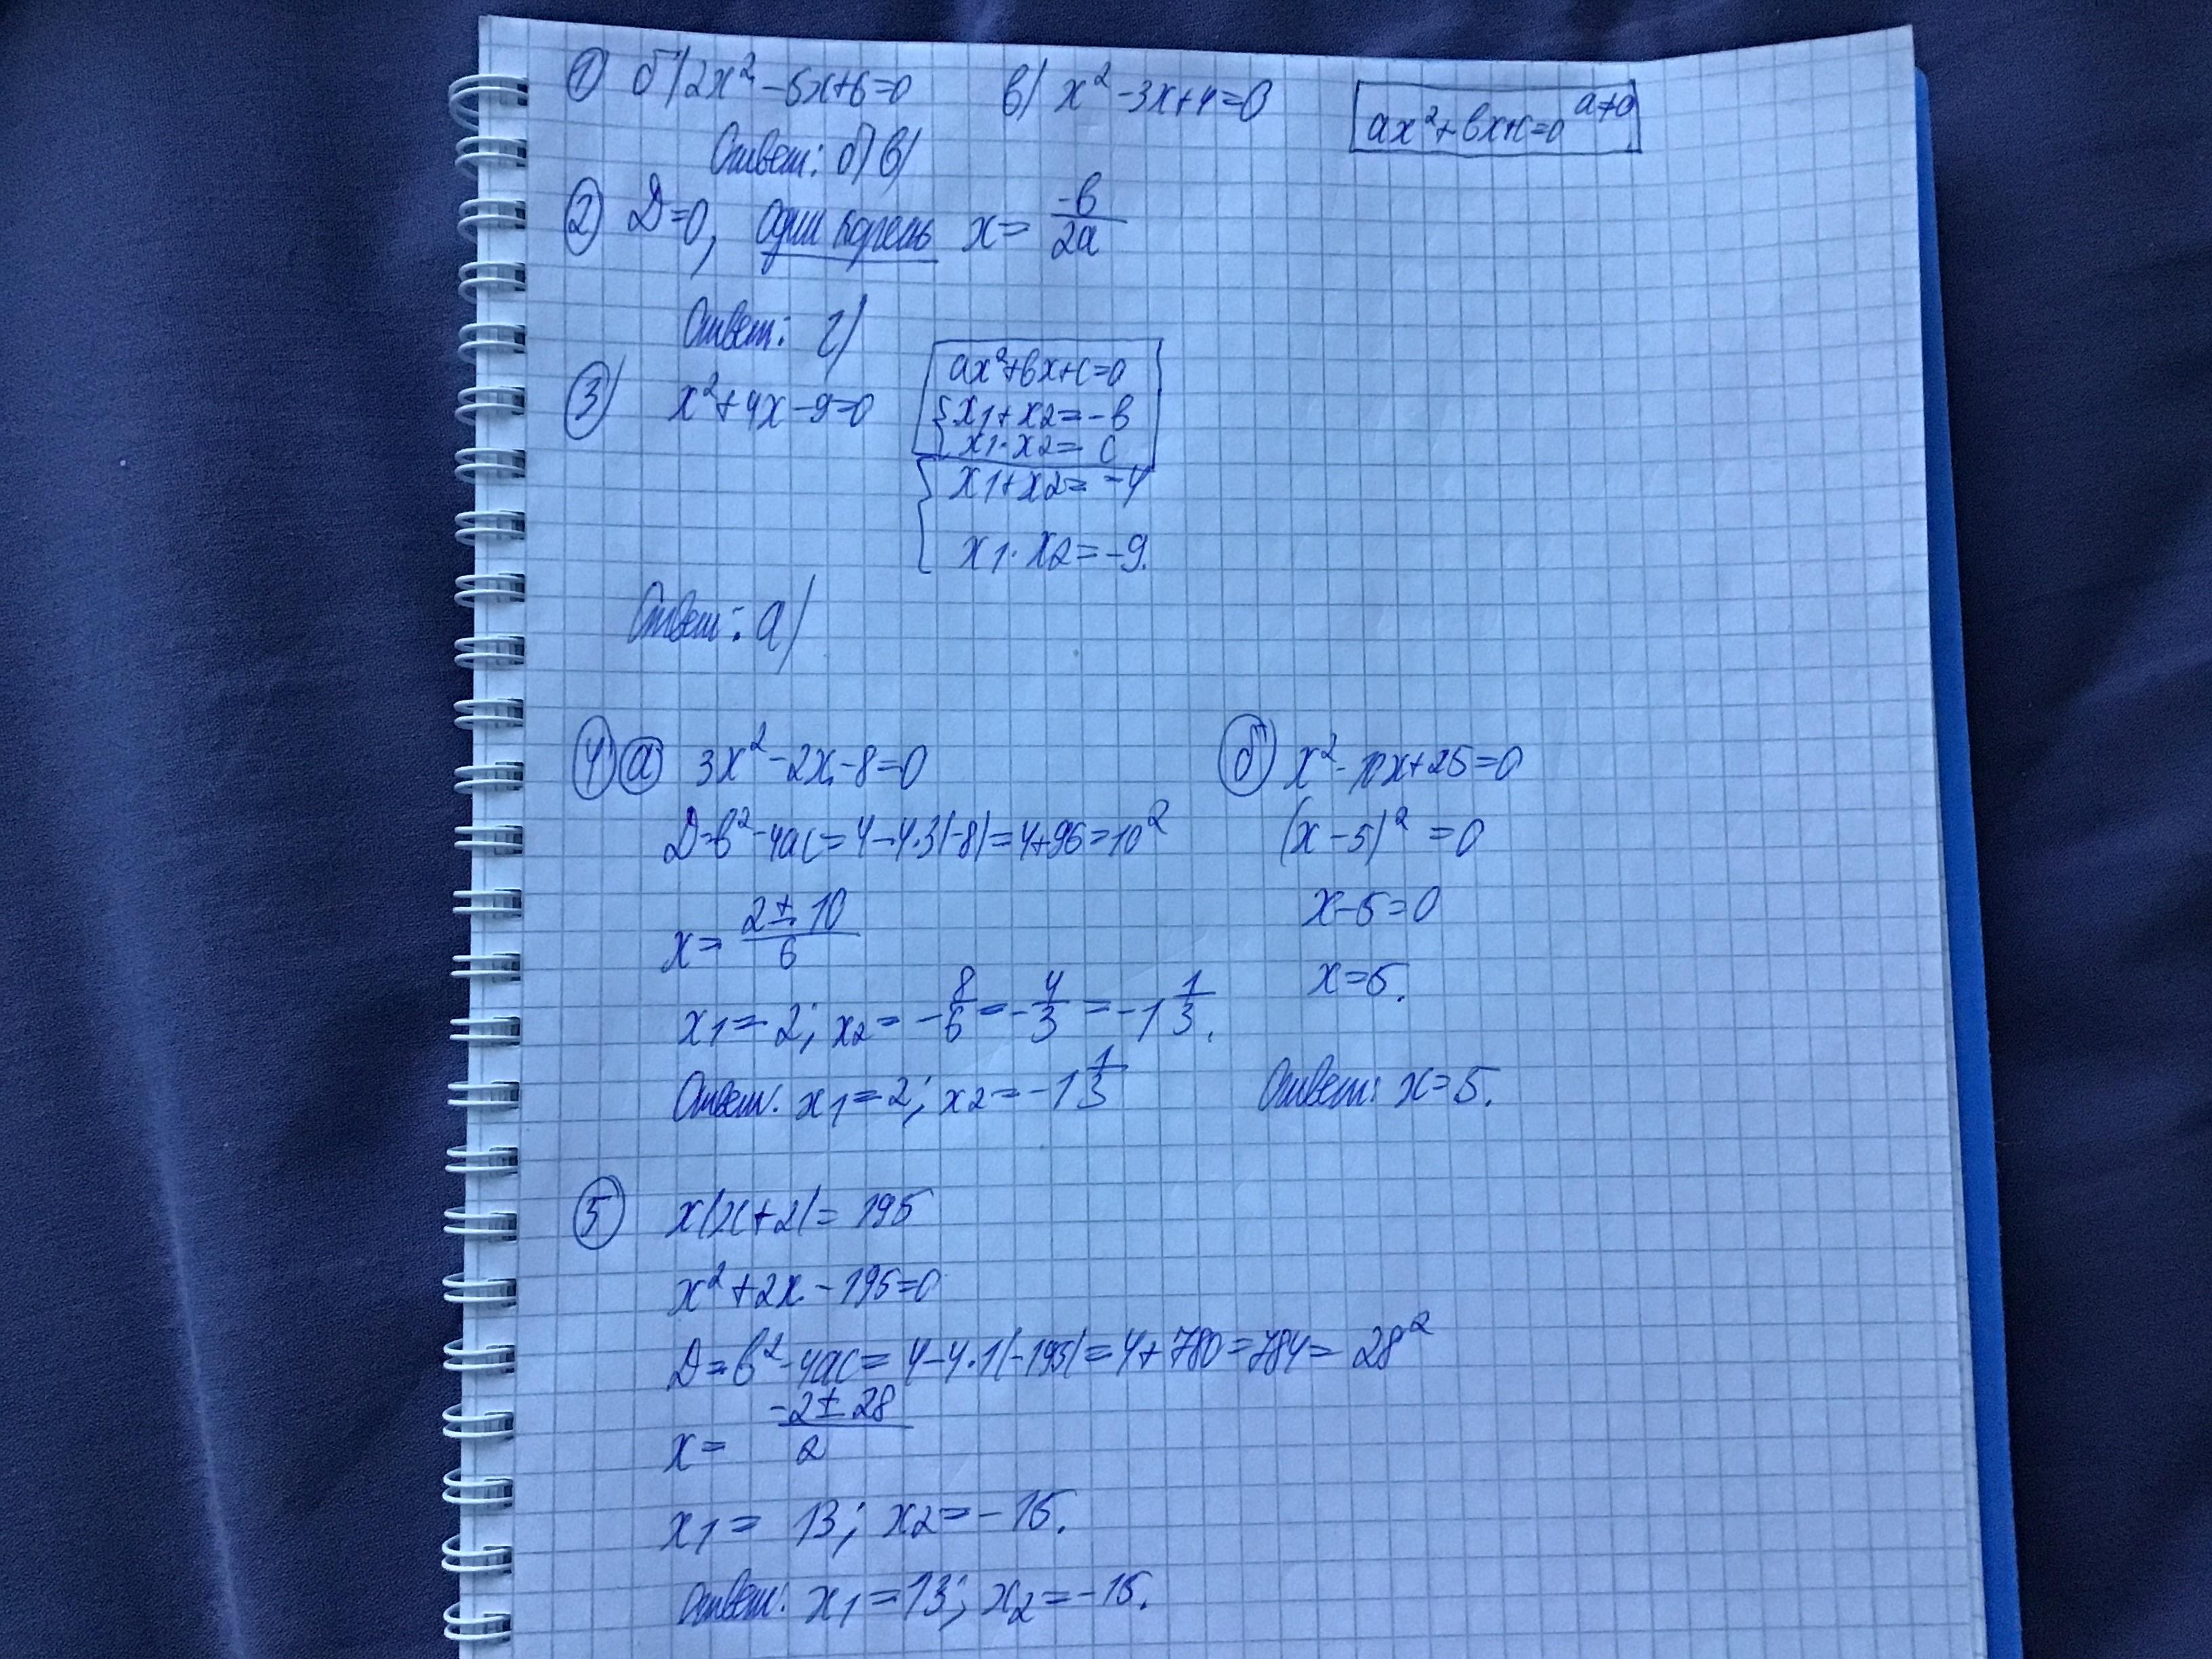 ① б) 2x² - 5x+6=0 в) x² - 3x+4=0 ax²+bx+c=0 a≠0
Ответ: б) в)
② D=0, один корень x = -b/2a
Ответ: г)
③ x²+4x-9=0
ax²+bx+c=0
{x1+x2=-b
x1·x2=c
{x1+x2=-4
x1·x2=-9.
Ответ: а)
④ а) 3x²-2x-8=0
D=b²-4ac=4-4·3(-8)=4+96=10²
x= (2±10)/6
x1=2; x2=-8/6=-4/3=-1 1/3.
Ответ: x1=2; x2=-1 1/3
б) x²-10x+25=0
(x-5)²=0
x-5=0
x=5.
Ответ: x=5.
⑤ x(x+2)=195
x²+2x-195=0
D=b²-4ac=4-4·1(-195)=4+780=784=28²
x= (-2±28)/2
x1=13; x2=-15.
Ответ: x1=13; x2=-15.